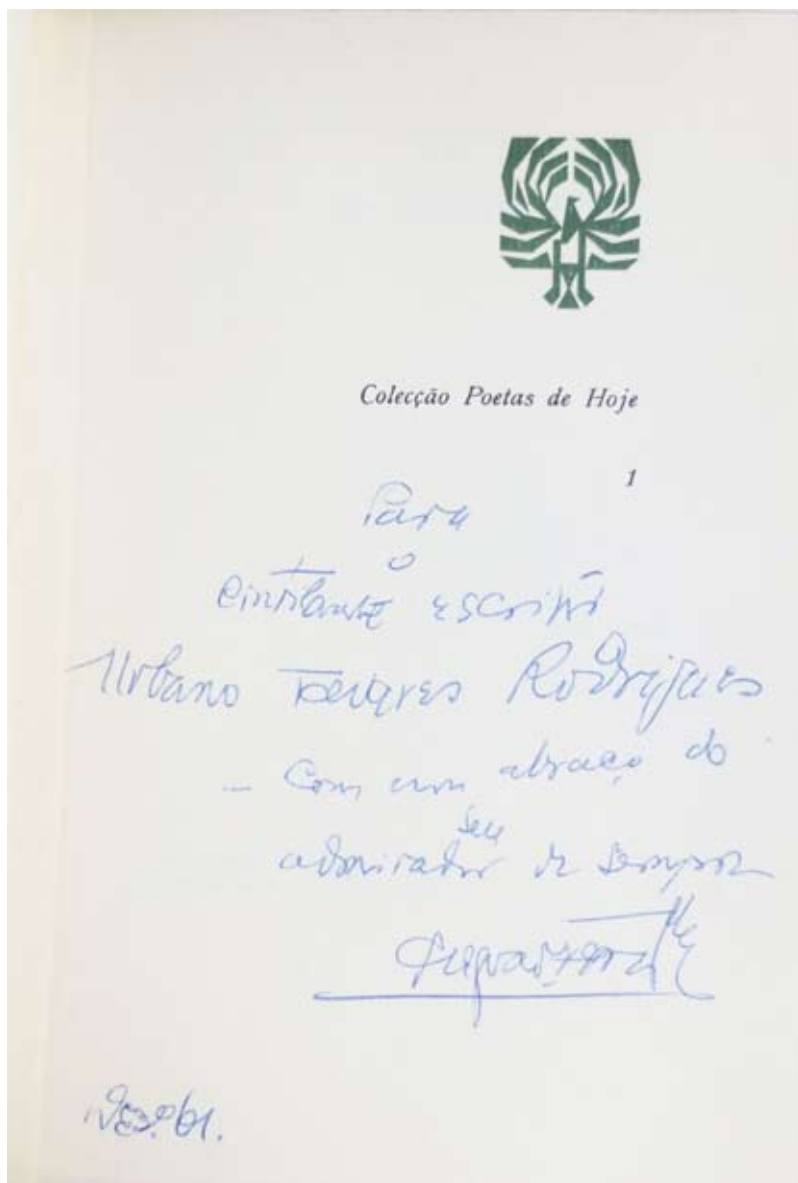 Colecção Poetas de Hoje
1
Para
o
escritor
Urbano Tavares Rodrigues
– com um abraço do
seu
admirador de sempre
Dez.º 61.